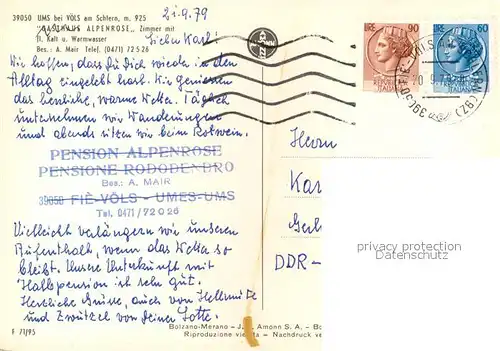 39050 UMS bei VÖLS am Schlern, m. 925
"GASTHAUS ALPENROSE", Zimmer mit
fl. Kalt u. Warmwasser
Bes.: A. Mair Telef. (0471) 72 5 26
21.9.79
Lieber Karl!
Wir hoffen, dass Du Dich wieder in den
Alltag eingelebt hast. Wir geniessen
das herrliche, warme Wetter. Täglich
unternehmen wir Wanderungen
und abends sitzen wir beim Rotwein.
PENSION ALPENROSE
PENSIONE RODODENDRO
Bes.: A. MAIR
39050 FIÈ-VÖLS - UMES-UMS
Tel. 0471/72026
Vielleicht verlängern wir unseren
Aufenthalt, wenn das Wetter so
bleibt. Unsere Unterkunft mit
Halbpension ist sehr gut.
Herzliche Grüsse, auch von
und von Deiner Lotte.
F 71/95
LIRE 90
LIRE 60
Herrn
Kar
Gerh
DDR-
privacy protection
Datenschutz
Bolzano-Merano - J. F. Amonn S. A. - Bo
Riproduzione vietata - Nachdruck ve